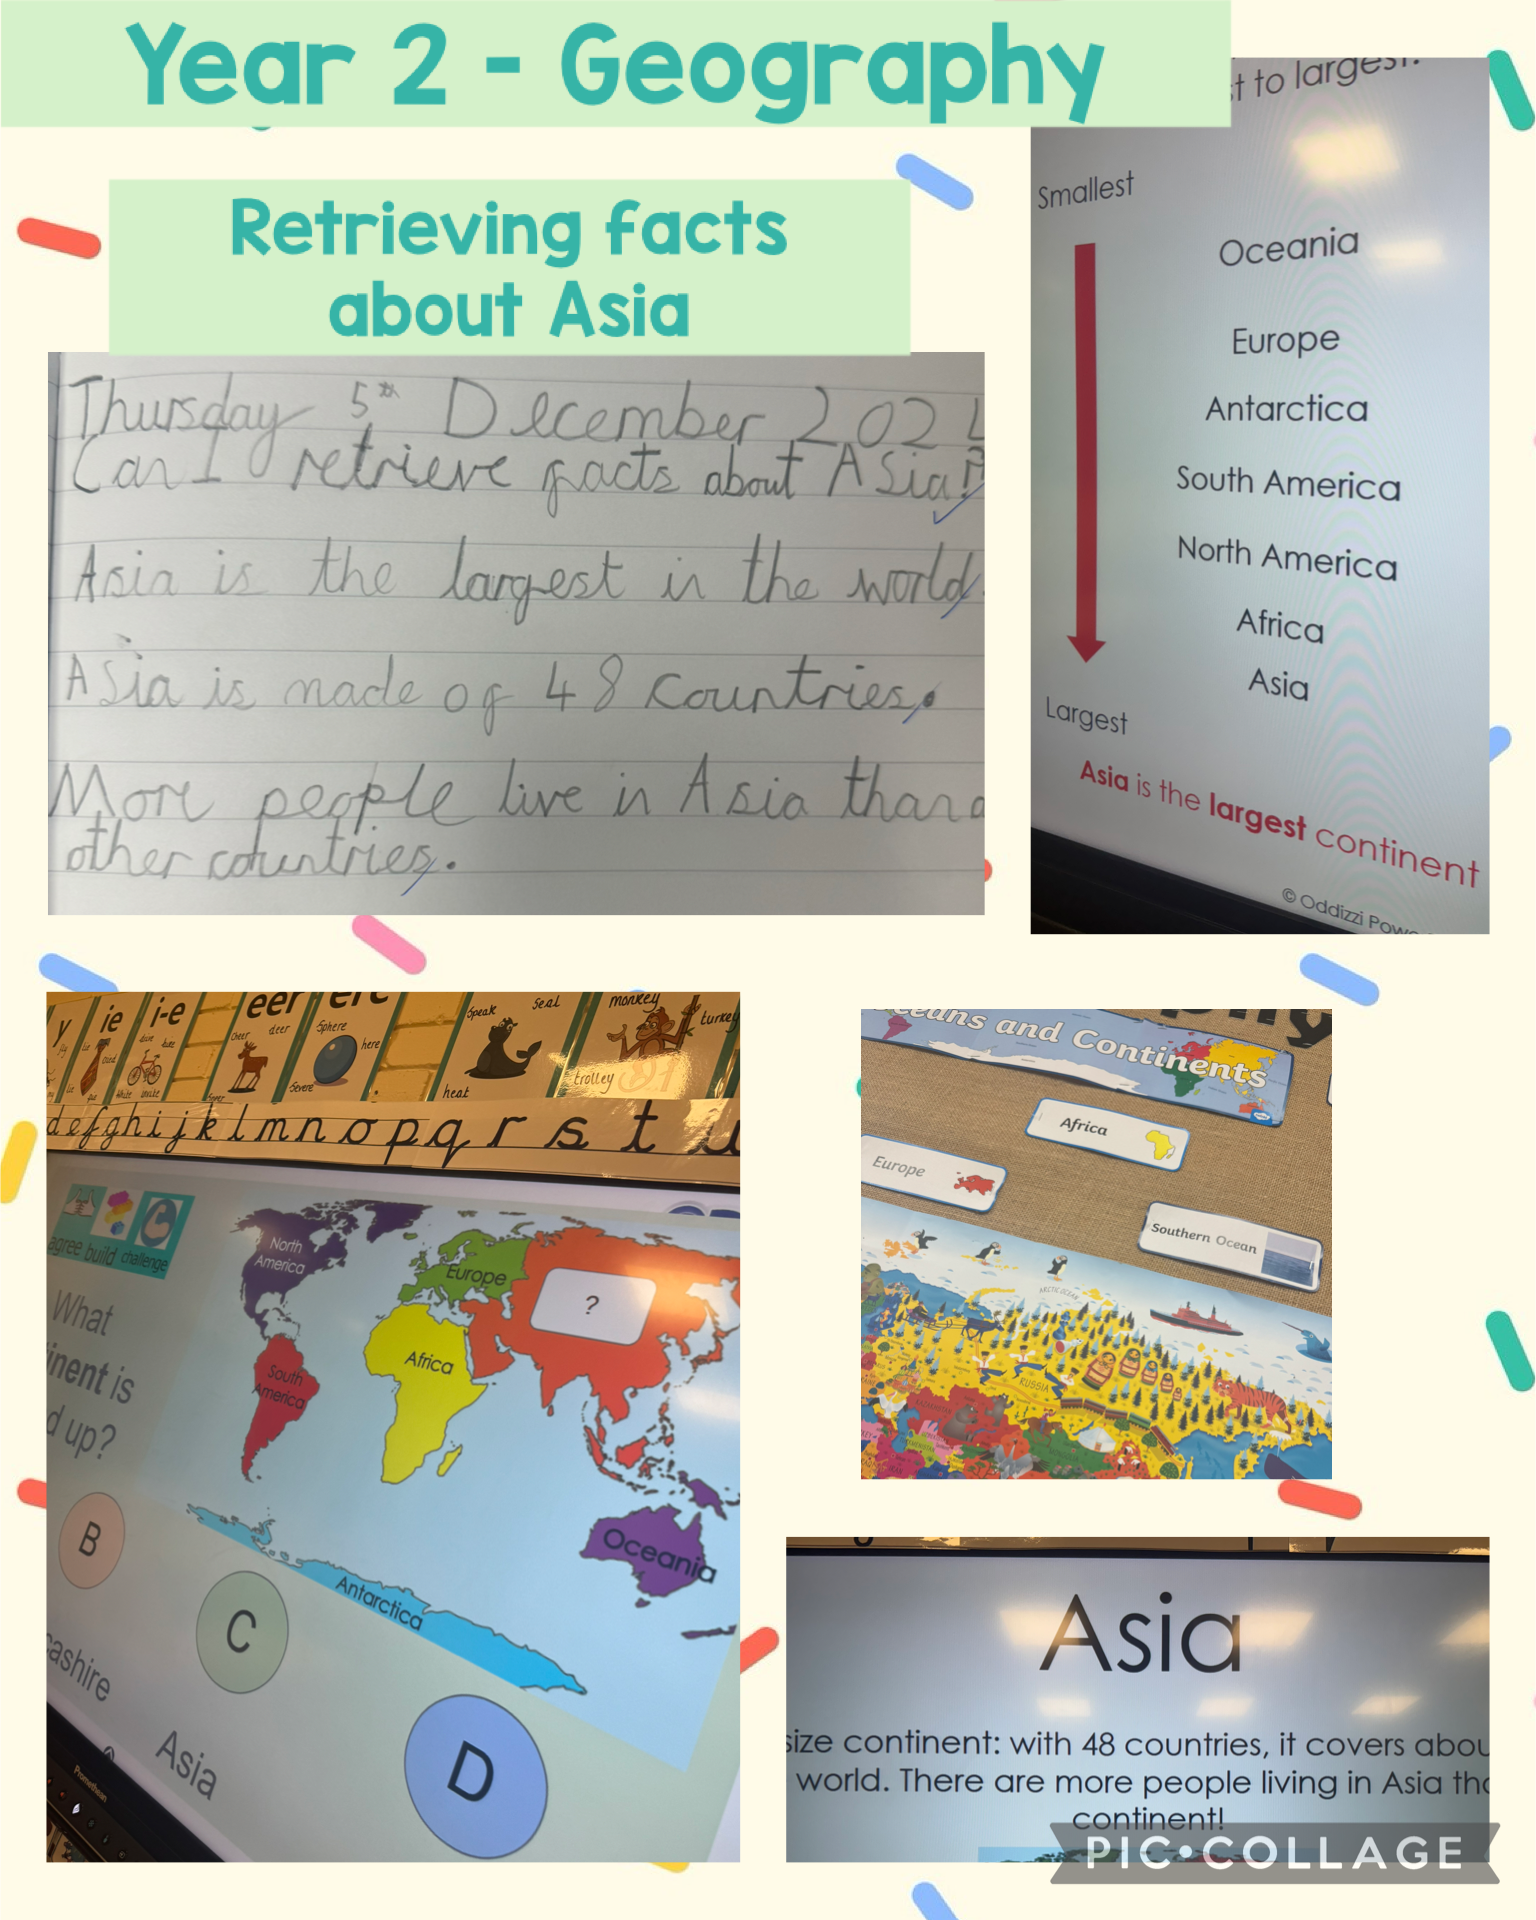 Year 2 - Geography
Retrieving facts
about Asia
Thursday 5th December 202
Can I retrieve facts about Asia?
Asia is the largest in the world.
Asia is made of 48 countries.
More people live in Asia than
other countries.
to largest.
Smallest
Oceania
Europe
Antarctica
South America
North America
Africa
Asia
Largest
Asia is the largest continent
© Oddizzi
y ie i-e eer ere
Cheer deer
Sphere
here
Severe
Speak
Seal
heat
monkey
turkey
trolley
d e f g h i j k l m n o p q r s t u
agree build challenge
What
is
up?
North
America
Europe
?
Africa
South
America
Oceania
Antarctica
B
C
D
Asia
Promethean
and Continents
Africa
Europe
Southern Ocean
ARCTIC OCEAN
RUSSIA
KAZAKHSTAN
Asia
size continent: with 48 countries, it covers
world. There are more people living in Asia
continent!
PIC•COLLAGE